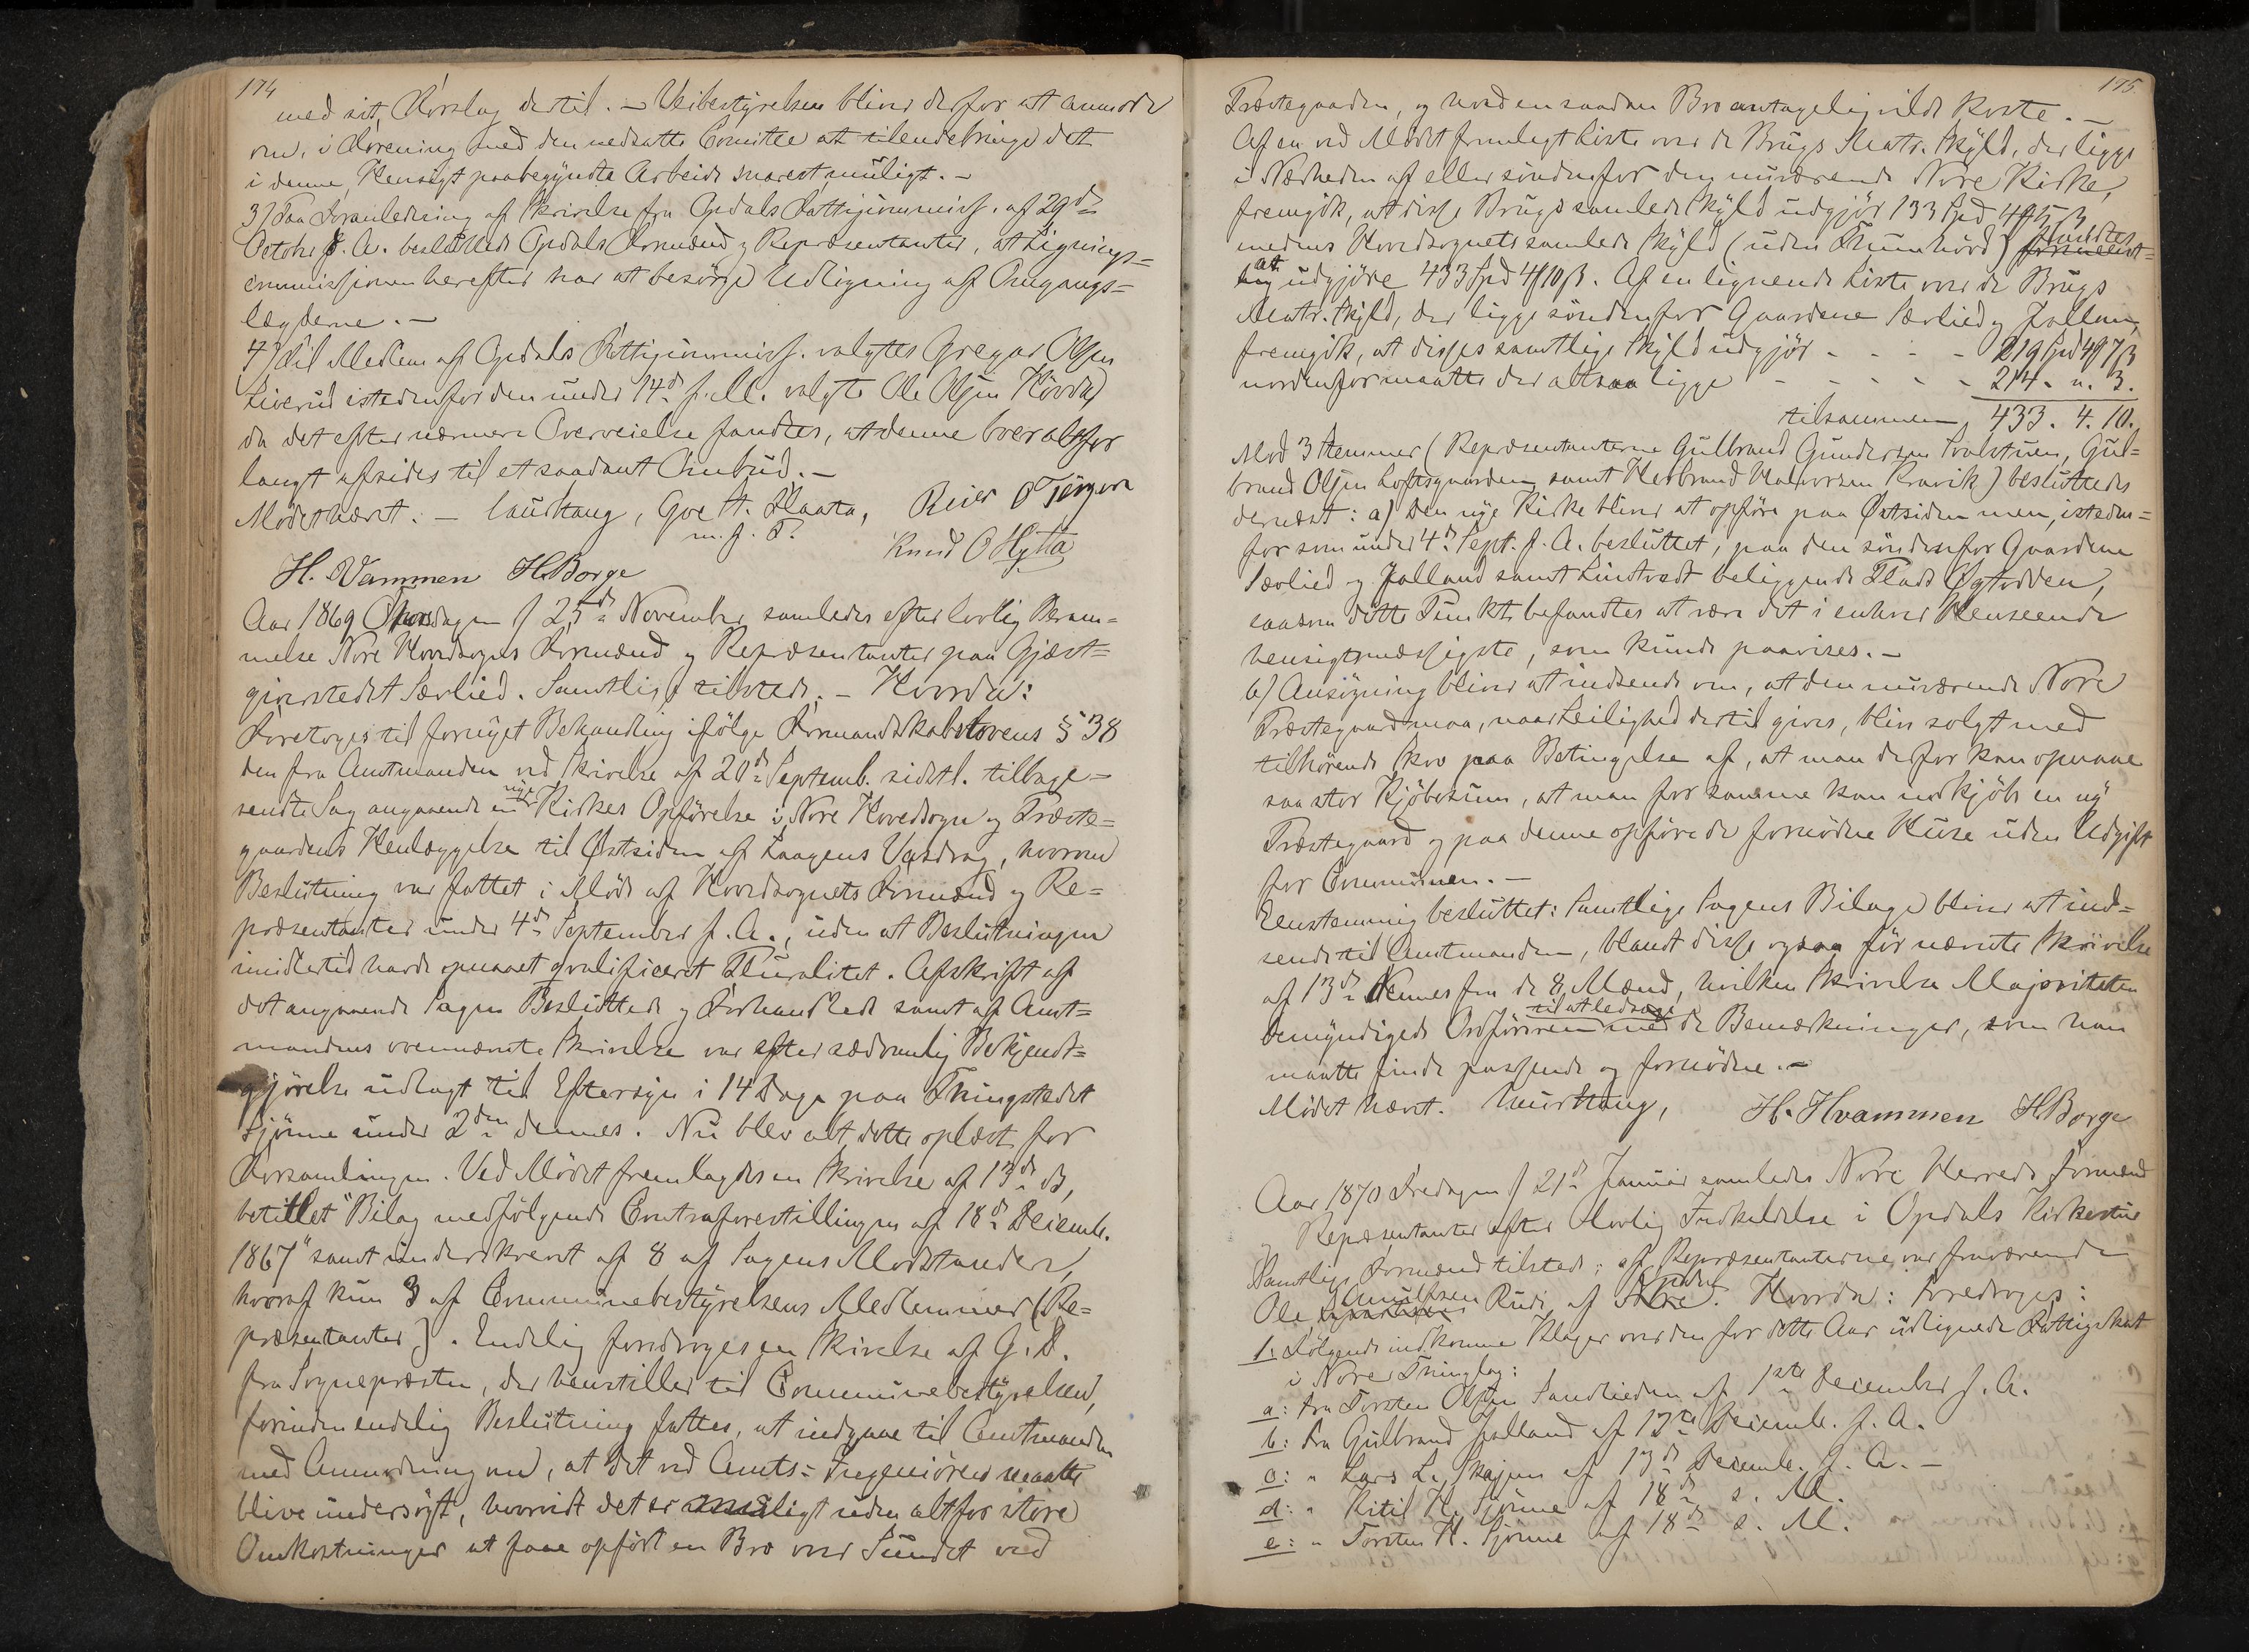 174
med sit Forslag dertil. — Veibestyrelsen bliver derfor at anmode
om, i Forening med den nedsatte Comitee at tilendebringe det
i denne Hensigt paabegyndte Arbeide snarest muligt. —
3) Paa Foranledning af Skrivelse fra Opdals Fattigcommiss. af 29de
October f. A. besluttede Opdals Formænd og Repræsentanter, at Lignings=
commissionen herefter har at besørge Udligning af Omgangs=
lægderne. —
4) Til Medlem af Opdals Fattigcommiss. valgtes Gregar Olsen
Liverud istedenfor den under 14de f. M. valgte Ole Olsen Hovde
da det efter nærmere Overveielse fandtes, at denne boer altfor
langt afsides til et saadant Ombud. —
Mødet hævet. — Taurhaug, Goe H. Flaata, Reier O Tørgen
m. f. P. Knud O Hytta
H. Vammen H. Borge
Aar 1869 Thorsdagen d 25de November samledes efter lovlig Beram=
melse Nore Hovedsogns Formænd og Repræsentanter paa Gjæst=
giverstedet Sævlied. Samtlige tilstede. — Hvorda:
Foretoges til fornyet Behandling ifølge Formandskabslovens § 38
den fra Amtmanden ved Skrivelse af 20de Septemb. sidstl. tilbage=
sendte Sag angaaende en ny Kirkes Opførelse i Nore Hovedsogn og Præste=
gaardens Henlæggelse til Østsiden af Laagens Vasdrag, hvorom
Beslutning var fattet i Møde af Hovedsognets Formænd og Re=
præsentanter under 4de September f. A., uden at Beslutningen
imidlertid havde opnaaet qvalificeret Pluralitet. Afskrift af
det angaaende Sagen Besluttede og Forhandlede samt af Amt=
mandens ovennævnte Skrivelse var efter sædvanlig Bekjendt=
gjørelse udlagt til Eftersyn i 14 Dage paa Thingstedet
Sjønne under 2den dennes. Nu blev alt dette oplæst for
Forsamlingen. Ved Mødet fremlagdes en Skrivelse af 13de ds,
betitlet "Bilag medfølgende Contraforestillingen af 18de Decemb.
1867" samt underskrevet af 8 af Sagens Modstandere,
hvoraf kun 3 af Communebestyrelsens Medlemmer (Re=
præsentanter). Endelig foredroges en Skrivelse af G. D.
fra Sognepræsten, der henstiller til Communebestyrelsen,
forinden endelig Beslutning fattes, at indgaae til Amtmanden
med Anmodning om, at det ved Amts=Ingeniøren maatte
blive undersøgt, hvorvidt det er muligt uden altfor store
Omkostninger at faae opført en Bro over Sundet ved
175
Præstegaarden, og hvad en saadan Bro antagelig vilde koste. —
Af en ved Mødet fremlagt Liste over de Brugs Matr. Skyld, der ligge
i Nærheden af eller søndenfor den nuværende Nore Kirke,
fremgik, at disse Brugs samlede Skyld udgjør 133 Spd 4 ₰ 5 ß
medens Hovedsognets samlede Skyld (uden Thunhovd) fandtes
at udgjøre 433 Spd 4 ₰ 10 ß. Af en lignende Liste over de Brugs
Matr. Skyld, der ligge søndenfor Gaardene Sævlied og Jalland,
fremgik, at disses samtlige Skyld udgjør - - - - 219 Spd 4 ₰ 7 ß
nordenfor maatte der altsaa ligge - - - - - 214. „. 3.
tilsammen 433. 4. 10.
Mod 3 Stemmer (Repræsentanterne Gulbrand Gundersen Tvabstuen, Gul=
brand Olsen Loftsgaarden samt Herbrand Halvorsen Kravik) besluttedes
dernæst: a) Den nye Kirke bliver at opføre paa Østsiden men, isteden=
for som under 4de Sept. f. A. besluttet, paa den søndenfor Gaardene
Sævlied og Jalland samt Lindtvedt beliggende Plads Øgtodden,
saasom dette Punkt befandtes at være det i enhver Henseende
hensigtsmæssigste, som kunde paavises. —
b) Ansøgning bliver at indsende om, at den nuværende Nore
Præstegaard maa, naar Leilighed dertil gives, blive solgt med
tilhørende Skov paa Betingelse af, at man derfor kan opnaae
saa stor Kjøbesum, at man for samme kan indkjøbe en ny
Præstegaard og paa denne opføre de fornødne Huse uden Udgift
for Communen. —
Eenstemmig besluttet: Samtlige Sagens Bilage bliver at ind=
sende til Amtmanden, blandt disse ogsaa før nævnte Skrivelse
af 13de dennes fra de 8 Mænd, hvilken Skrivelse Majoriteten
bemyndigede Ordføreren til at ledsage med de Bemærkninger, som han
maatte finde passende og fornødne. —
Mødet hævet. Taurhaug, H. Hvammen H. Borge
Aar 1870 Fredagen d 21de Januar samledes Nore Herreds Formænd
og Repræsentanter efter lovlig Indkaldelse i Opdals Kirkestue
Samtlige Formænd tilstede; af Repræsentanterne var fraværende
Ole Knudsen Rudi af Opdal. Hvorda: Foredroges:
1: Følgende indkomne Klager over den for dette Aar udlignede Fattigskat
i Nore Thinglag:
a: Fra Torsten Olsen Sandlieden af 1ste December f. A.
b: Fra Gulbrand Jalland af 12te Decemb. f. A.
c: „ Lars L. Skajem af 13de Decemb. f. A. —
d: „ Kitil H. Sjønne af 18de s. M.
e: „ Torsten H. Sjønne af 18de s. M.